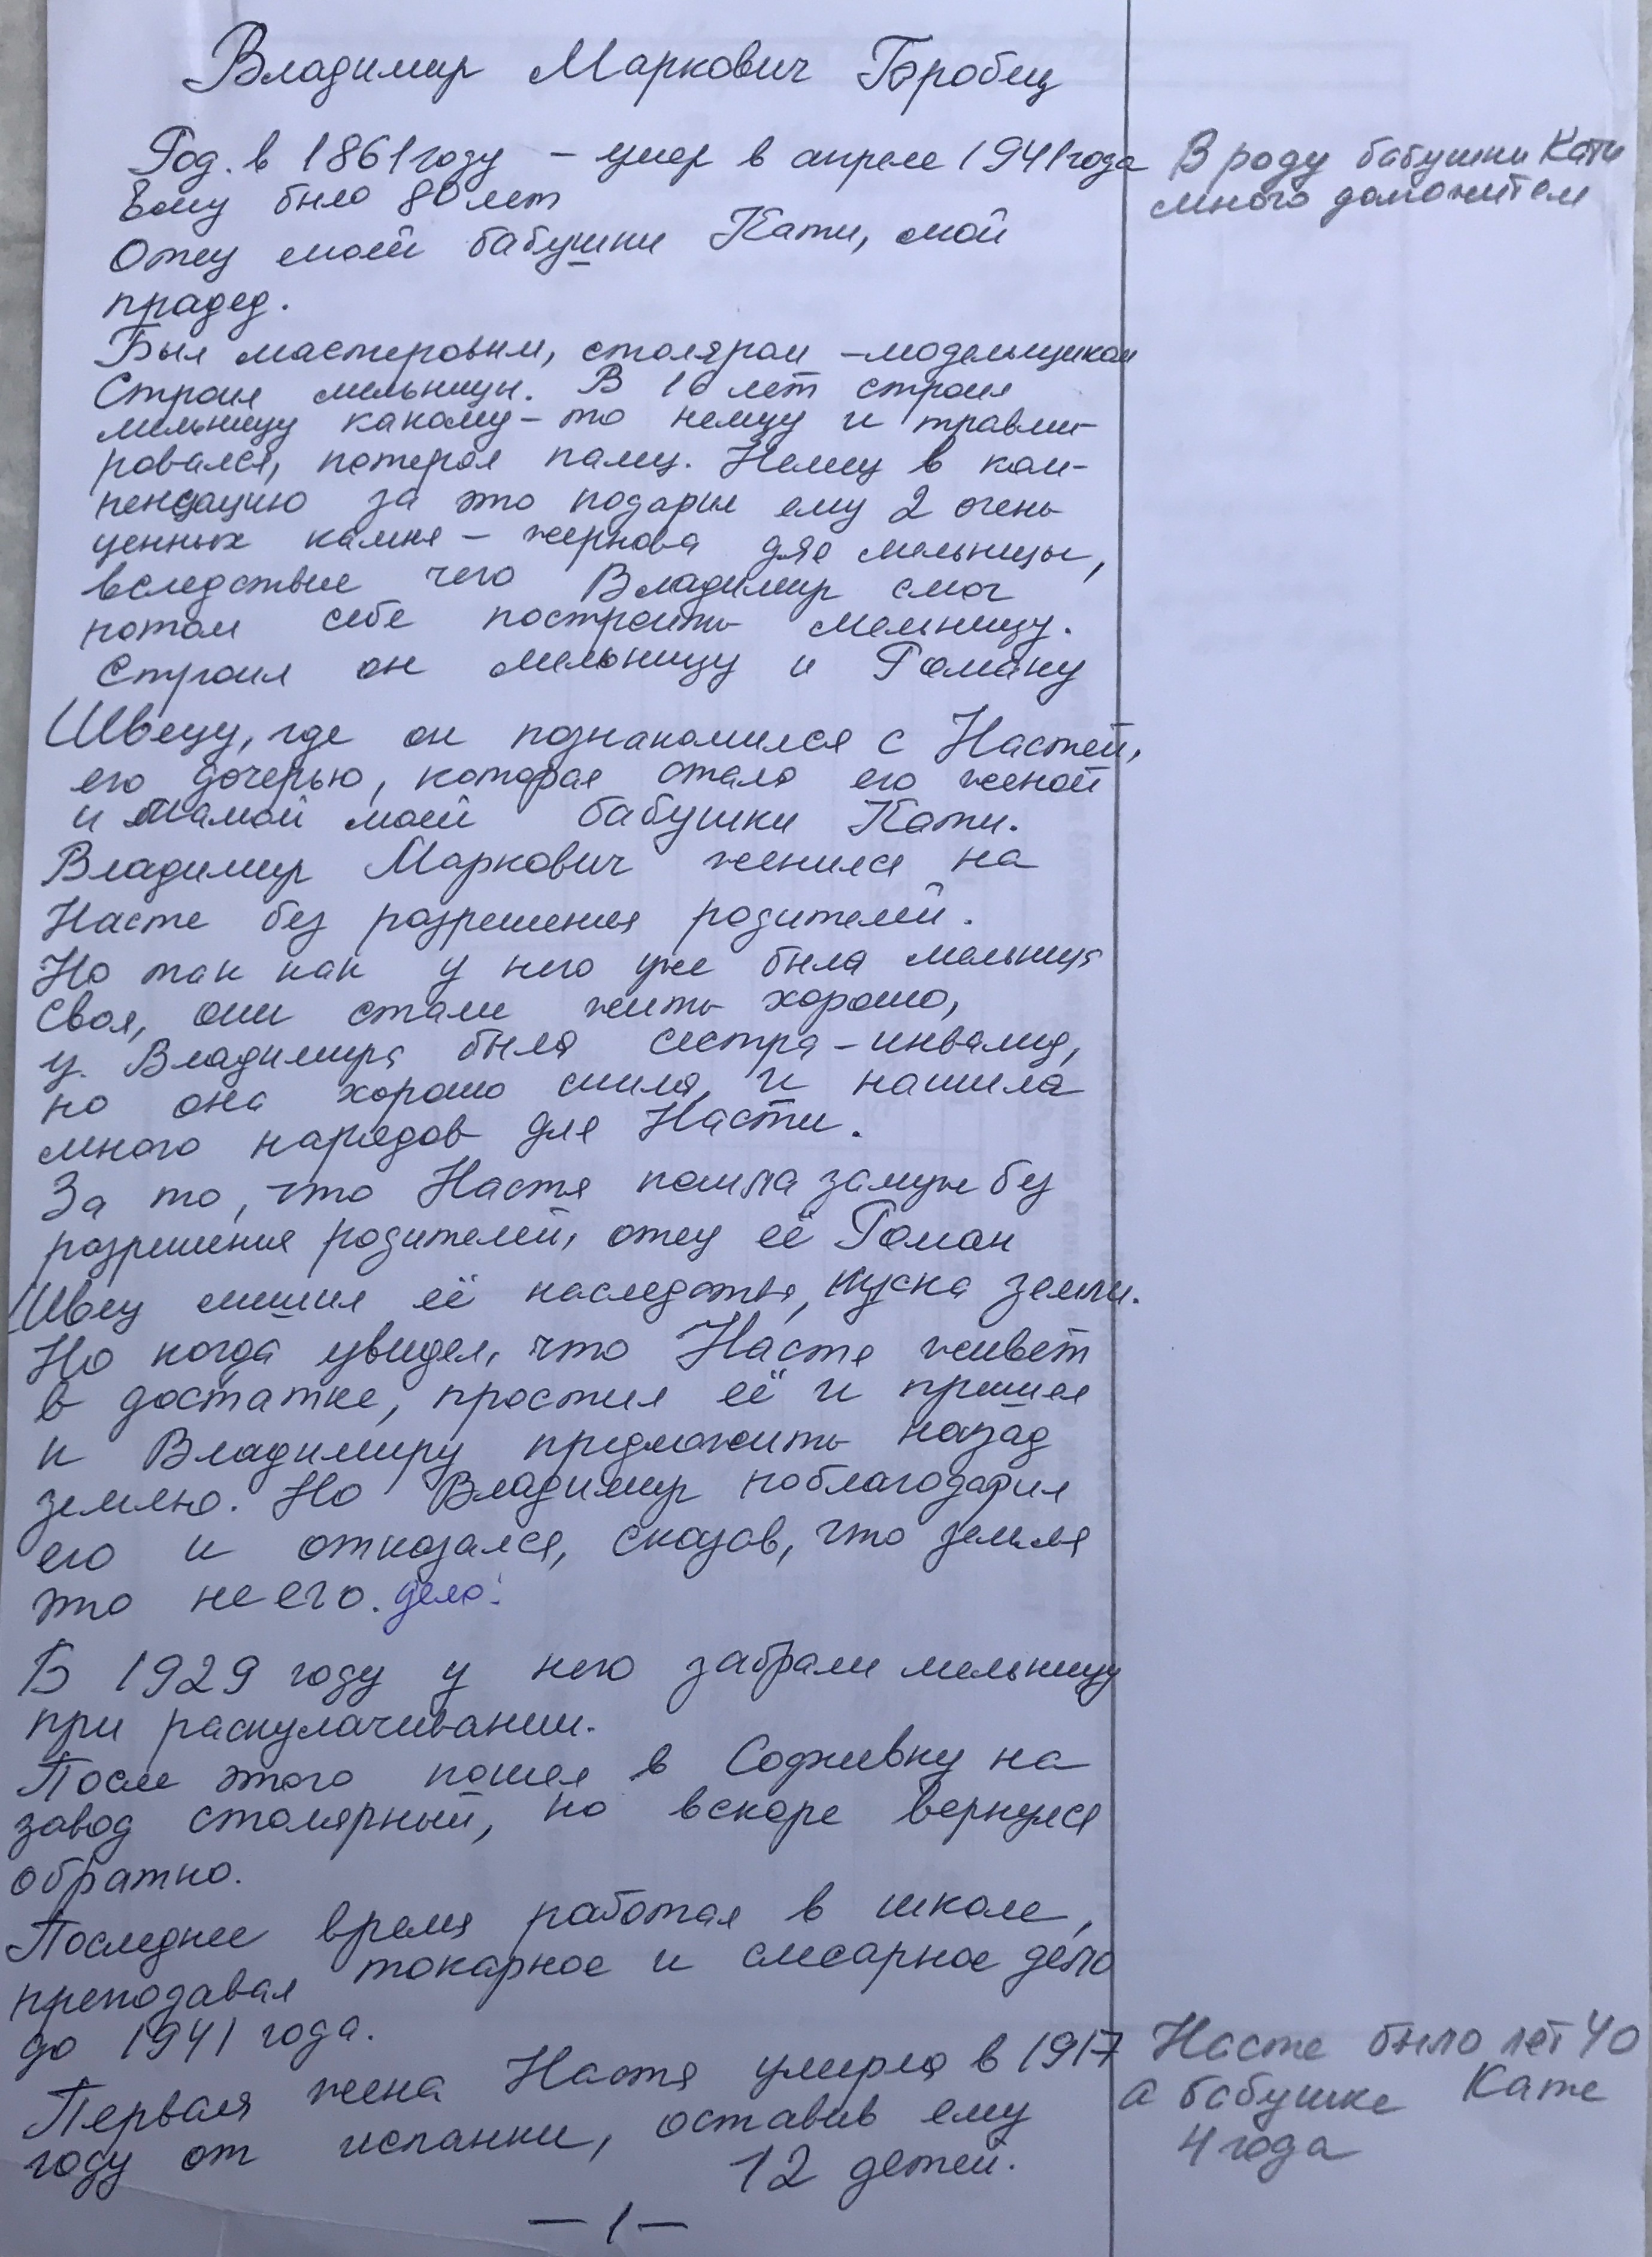 Владимир Маркович Горобец
Род. в 1861 году – умер в апреле 1941 года
Ему было 80 лет
В роду бабушки Кати
много долгожителей
Отец моей бабушки Кати, мой
прадед.
Был мастеровым, столяром-модельщиком
Строил мельницы. В 16 лет строил
мельницу какому-то немцу и травми-
ровался, потерял палец. Немец в ком-
пенсацию за это подарил ему 2 очень
ценных камня – жернова для мельницы,
вследствие чего Владимир смог
потом себе построить мельницу.
Строил он мельницу и Роману
Швецу, где он познакомился с Настей,
его дочерью, которая стала его женой
и мамой моей бабушки Кати.
Владимир Маркович женился на
Насте без разрешения родителей.
Но так как у него уже была мельница
своя, они стали жить хорошо,
у Владимира была сестра-инвалид,
но она хорошо шила, и нашила
много нарядов для Насти.
За то, что Настя пошла замуж без
разрешения родителей, отец её Роман
Швец лишил её наследства, куска земли.
Но когда увидел, что Настя живет
в достатке, простил её и пришел
к Владимиру предложить назад
землю. Но Владимир поблагодарил
его и отказался, сказав, что земля
это не его дело.
В 1929 году у него забрали мельницу
при раскулачивании.
После этого пошел в Софиевку на
завод столярный, но вскоре вернулся
обратно.
Последнее время работал в школе,
преподавал токарное и слесарное дело
до 1941 года.
Первая жена Настя умерла в 1917
году от испанки, оставив ему
12 детей.
Насте было лет 40
а бабушке Кате
4 года
– 1 –